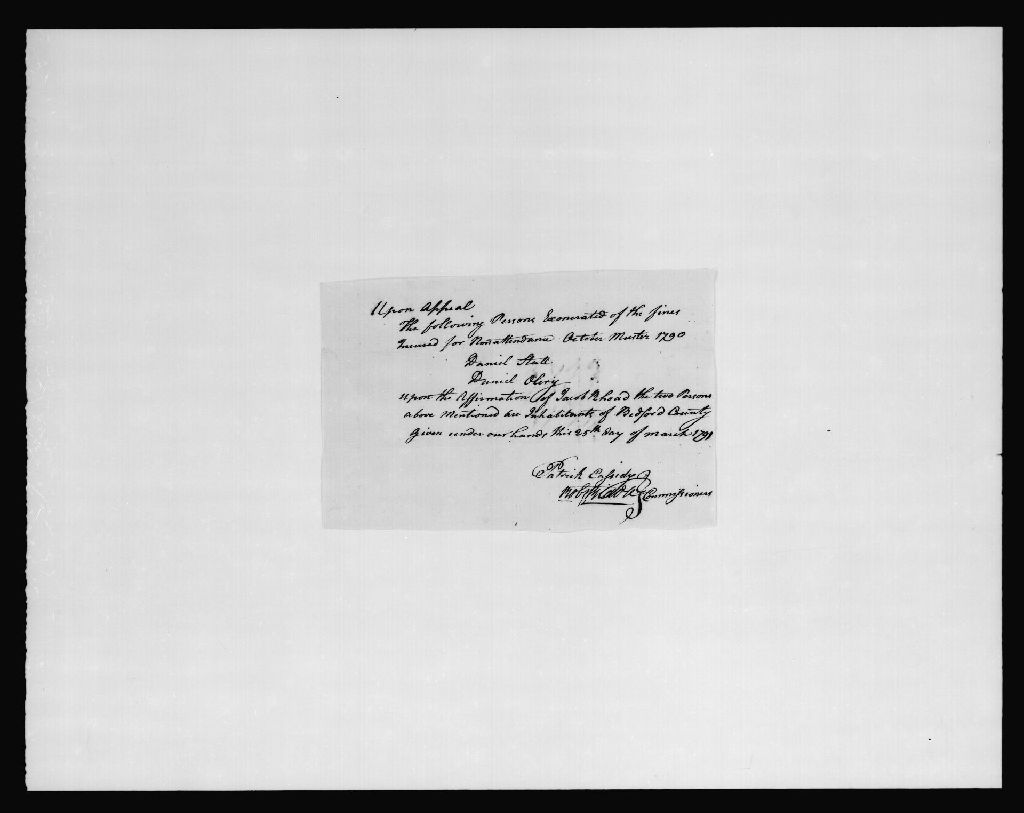 Upon Appeal
The following Persons Exonerated of the fines
Incured for Nonattendance October Muster 1790
Daniel Stull
Daniel
upon the Affirmation of Jacob Rhoad the two Persons
above Mentioned are Inhabitants of Bedford County
Given under our hands this 25th day of march 1791
Patrick Cassidy
Commissioners